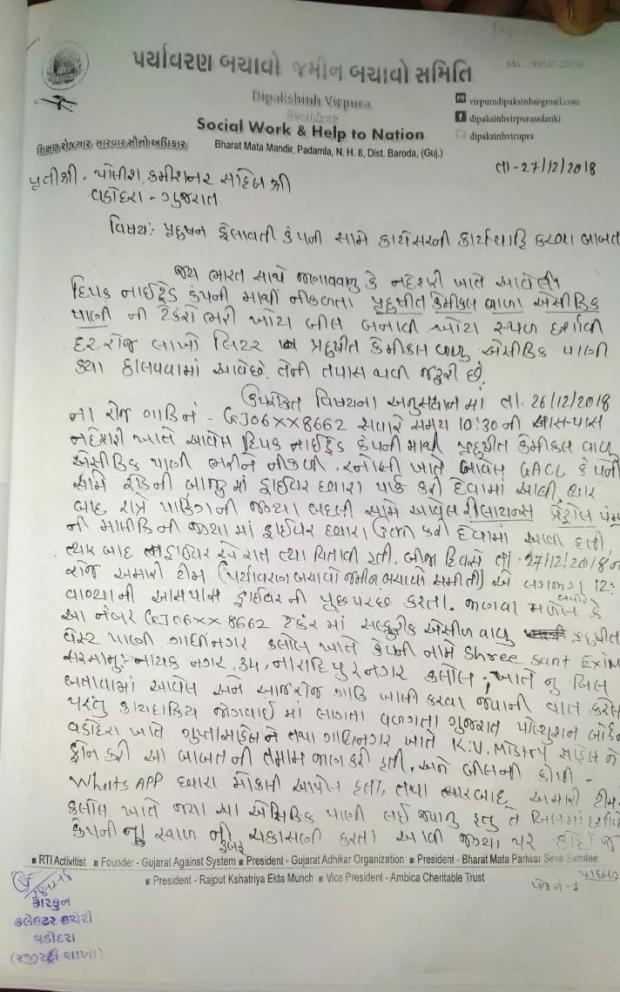 પર્યાવરણ બચાવો જમીન બચાવો સમિતિ
Dipaksinh Virpura
President
Social Work & Help to Nation
Bharat Mata Mandir, Padamla, N. H. 8, Dist. Baroda, (Guj.)
virpuradipaksinh@gmail.com
dipaksinhvirpurasolanki
dipaksinhvirupra
તા-27/12/2018
પ્રતીશ્રી- પોલીશ કમીશનર સાહેબ શ્રી
વડોદરા - ગુજરાત
વિષય: પ્રદુષન ફેલાવતી કંપની સામે કાયેસરની કાર્યવાહિ કરવા બાબત
જય ભારત સાથે જણાવવાનુ કે નંદેશરી ખાતે આવેલી
દિપક નાઈટ્રેડ કંપની માથી નીકળતા પ્રદુષીત કેમીકલ વાળા એસીડિક
પાણી ની ટેંકરો ભરી ખોટા બીલ બનાવી ખોટા સ્થળ દર્શાવી
દરરોજ લાખો લિટર પ્રદુષીત કેમીકલ વાળુ એસીડિક પાણી
ક્યા ઠાલવવામાં આવેછે. તેની તપાસ થવી જરૂરી છે.
ઉપરોક્ત વિષયના અનુસંધાન માં તા. 26/12/2018
ના રોજ ગાડિ નં - GJ06XX8662 સવારે સમય 10:30 ની આસ-પાસ
નંદેશરી ખાતે આવેલ દિપક નાઈટ્રેડ કંપની માથી પ્રદુષીત કેમીકલ વાળુ
એસીડિક પાણી ભરીને નીકળી. રનોલી ખાતે આવેલ GACL કંપની
સામે રોડની બાજુ માં ડ્રાઈવર દ્વારા પાર્ક કરી દેવામાં આવી, ત્યાર
બાદ રાત્રે પાર્કિંગની જગ્યા બદલી સામે આવેલ રીલાયન્સ પેટ્રોલ પંપ
ની માલીકિ ની જગ્યા માં ડ્રાઈવર દ્વારા ઉભી કરી દેવામાં આવી હતી,
ત્યાર બાદ ડ્રાઈવરે રાત ત્યા વિતાવી હતી. બીજા દિવસે તા. 27/12/2018 ના
રોજ અમારી ટીમ (પર્યાવરણ બચાવો જમીન બચાવો સમીતી) એ લગભગ 12:
વાગ્યાની આસપાસ ડ્રાઈવર ની પુછપરછ કરતા. જાણવા મળેલ કે
આ નંબર GJ06XX8662 ટેંકર માં સલ્ફુરીક એસીડ વાળુ પ્રદુષીત
વેસ્ટ પાણી ગાંધીનગર કલોલ ખાતે કંપની નામે Shree Sant Exim
સરનામુ:- નાયક નગર, 34, નારદિપુરનગર કલોલ, ખાતે નુ બિલ
બતાવામાં આવેલ અને આજરોજ ગાડિ ખાલી કરવા જવાની વાત કરેલ
પરંતુ કાયદાકિય જોગવાઈ માં લાગતા વળગતા ગુજરાત પોલ્યુશન બોર્ડ
વડોદરા ખાતે ગુપ્તાસાહેબને તથા ગાંધીનગર ખાતે K.U. Mistry સાહેબ ને
ફોન કરી આ બાબત ની તમામ જાણ કરી હતી, અને બીલની કોપી -
Whats APP દ્વારા મોકલી આપેલ હતા, તથા ત્યારબાદ અમારી ટીમ
કલોલ ખાતે જ્યા આ એસિડિક પાણી લઈ જવાનુ હતુ તે બિલમાં
કંપની નુ સ્થળ ની ચકાસણી કરતા આવી જગ્યા પર કોઈ જ
RTI Activitist ■ Founder - Gujarat Against System ■ President - Gujarat Adhikar Organization ■ President - Bharat Mata Pariwar Seva Samitee
■ President - Rajput Kshatriya Ekta Munch ■ Vice President - Ambica Cheritable Trust
પેજ નં-1
કારકુન
કલેક્ટર કચેરી
વડોદરા
(રજીસ્ટ્રી શાખા)